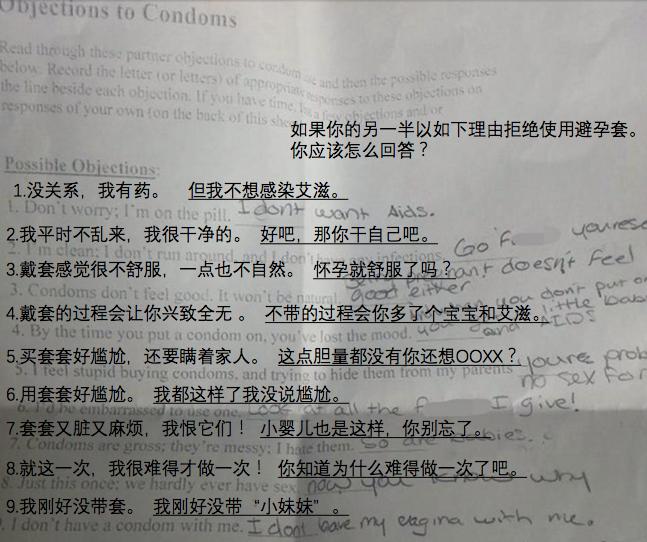 Objections to Condoms
Read through these partner objections to condom use and then the possible responses
below. Record the letter (or letters) of appropriate responses to these objections on
the line beside each objection. If you have time, a few objections and/or
responses of your own (on the back of this she
如果你的另一半以如下理由拒绝使用避孕套。
你应该怎么回答？
Possible Objections:
1.没关系，我有药。 但我不想感染艾滋。
1. Don't worry; I'm on the pill. I dont want Aids.
2.我平时不乱来，我很干净的。 好吧，那你干自己吧。
2. I'm clean; I don't run around, and I don't have any infections. Go F
3.戴套感觉很不舒服，一点也不自然。 怀孕就舒服了吗？
3. Condoms don't feel good. It won't be natural. pregnant doesn't feel
good either
4.戴套的过程会让你兴致全无 。 不带的过程会你多了个宝宝和艾滋。
4. By the time you put a condom on, you've lost the mood. you don't put on
little AIDS
5.买套套好尴尬，还要瞒着家人。 这点胆量都没有你还想OOXX？
5. I feel stupid buying condoms, and trying to hide them from my parents youre prob
no sex for
6.用套套好尴尬。 我都这样了我没说尴尬。
6. I'd be embarrassed to use one. Look at all the f I give!
7.套套又脏又麻烦，我恨它们！ 小婴儿也是这样，你别忘了。
7. Condoms are gross; they're messy; I hate them. So are babies.
8.就这一次，我很难得才做一次！ 你知道为什么难得做一次了吧。
8. Just this once; we hardly ever have sex. now you know why
9.我刚好没带套。 我刚好没带“小妹妹”。
. I don't have a condom with me. I dont have my vagina with me.